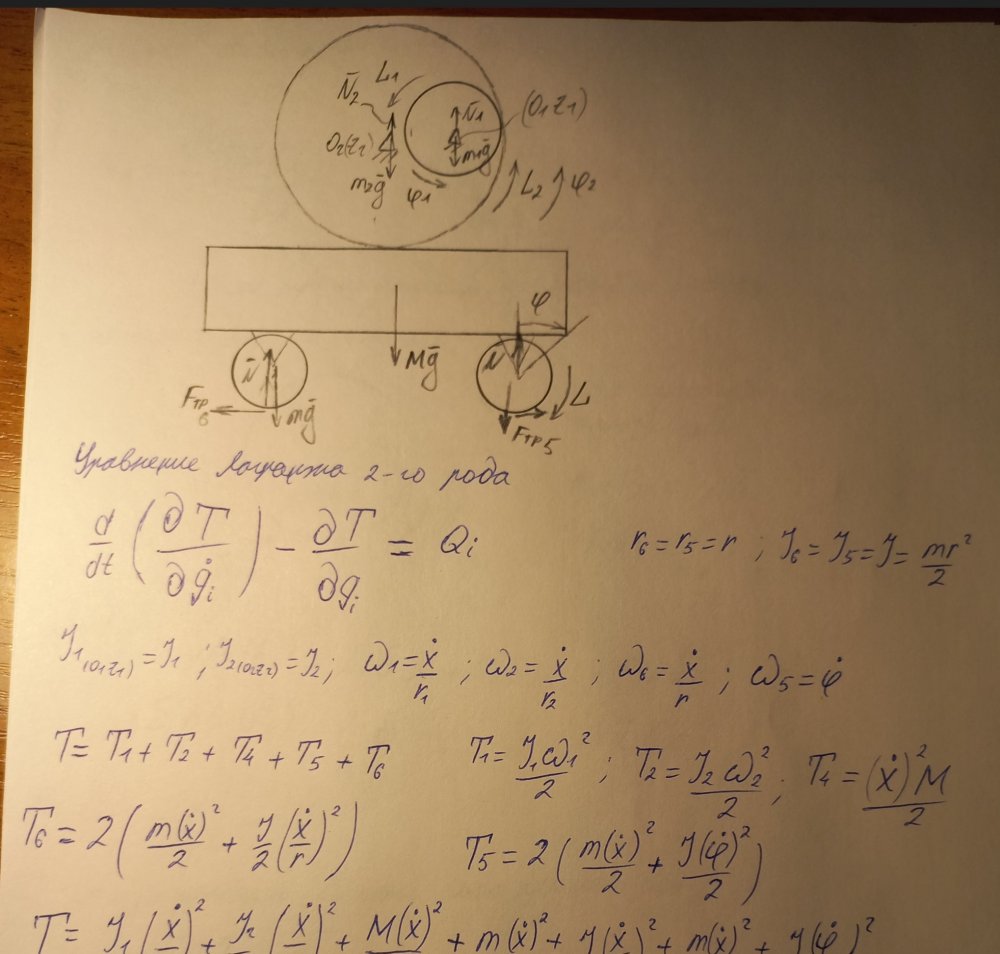 L₁
N̄₂
N̄₁
(O₁z₁)
O₂(z₂)
m₁ḡ
m₂ḡ
φ₁
L₂
φ₂
φ
N̄
N̄
Mḡ
L
Fтр 6
mḡ
Fтр 5
Уравнение Лагранжа 2-го рода
d/dt (∂T/∂q̇ᵢ) − ∂T/∂qᵢ = Qᵢ
r₆ = r₅ = r ; J₆ = J₅ = J = mr²/2
J₁(O₁z₁) = J₁ ; J₂(O₂z₂) = J₂ ; ω₁ = ẋ/r₁ ; ω₂ = ẋ/r₂ ; ω₆ = ẋ/r ; ω₅ = φ̇
T = T₁ + T₂ + T₄ + T₅ + T₆
T₁ = J₁ω₁²/2 ; T₂ = J₂ω₂²/2 ; T₄ = (ẋ)²M/2
T₆ = 2(m(ẋ)²/2 + J/2 (ẋ/r)²)
T₅ = 2(m(ẋ)²/2 + J(φ̇)²/2)
T = J₁(ẋ)² + J₂(ẋ)² + M(ẋ)² + m(ẋ)² + J(ẋ)² + m(ẋ)² + J(φ̇)²